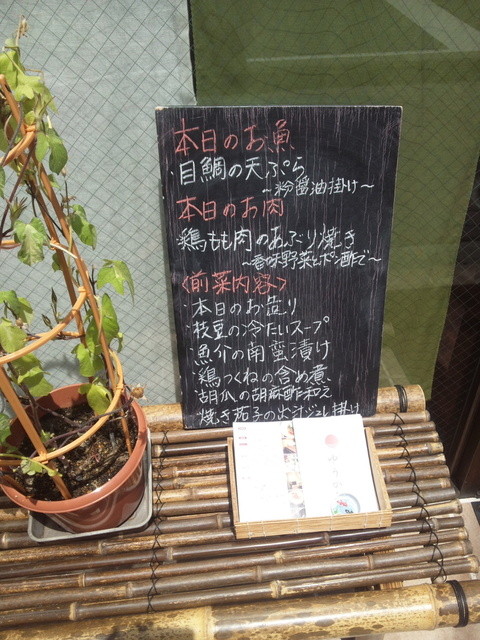 本日のお魚
・目鯛の天ぷら
〜粉醤油掛け〜
本日のお肉
鶏もも肉のあぶり焼き
〜香味野菜とポン酢で〜
〈前菜内容〉
・本日のお造り
・枝豆の冷たいスープ
・魚介の南蛮漬け
・鶏つくねの含め煮
・胡瓜の胡麻酢和え
・焼き茄子の出汁ジュレ掛け